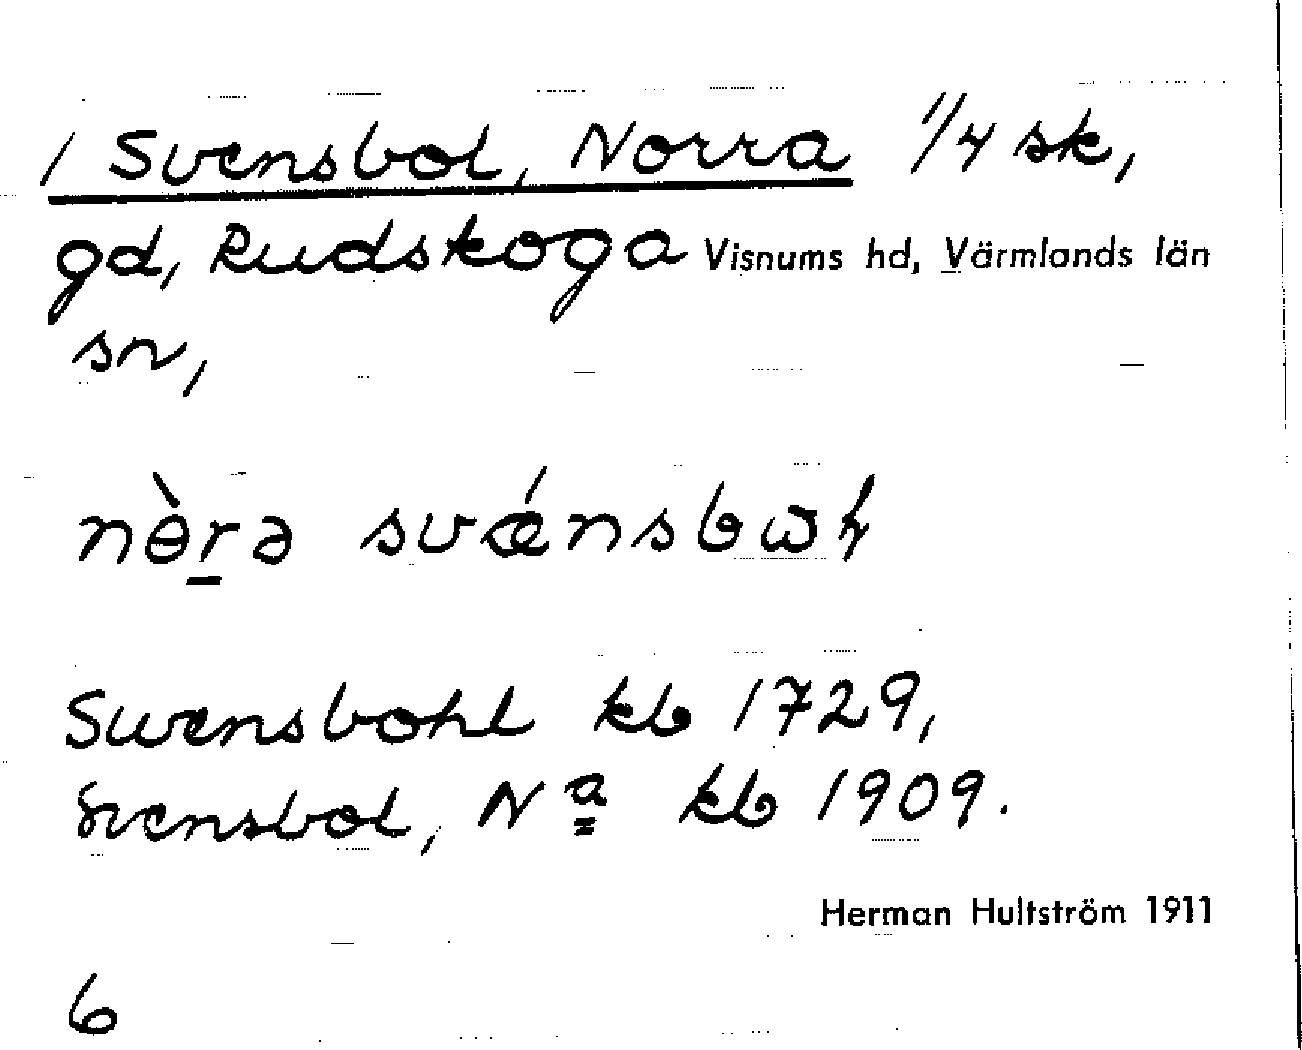 / Svensbol, Norra 1/4 sk,
gd, Rudskoga Visnums hd, Värmlands län
sn,
nè̱rə svǽnsbɷɫ
Swensbohl kb 1729,
Svensbol, Nª kb 1909.
Herman Hultström 1911
6